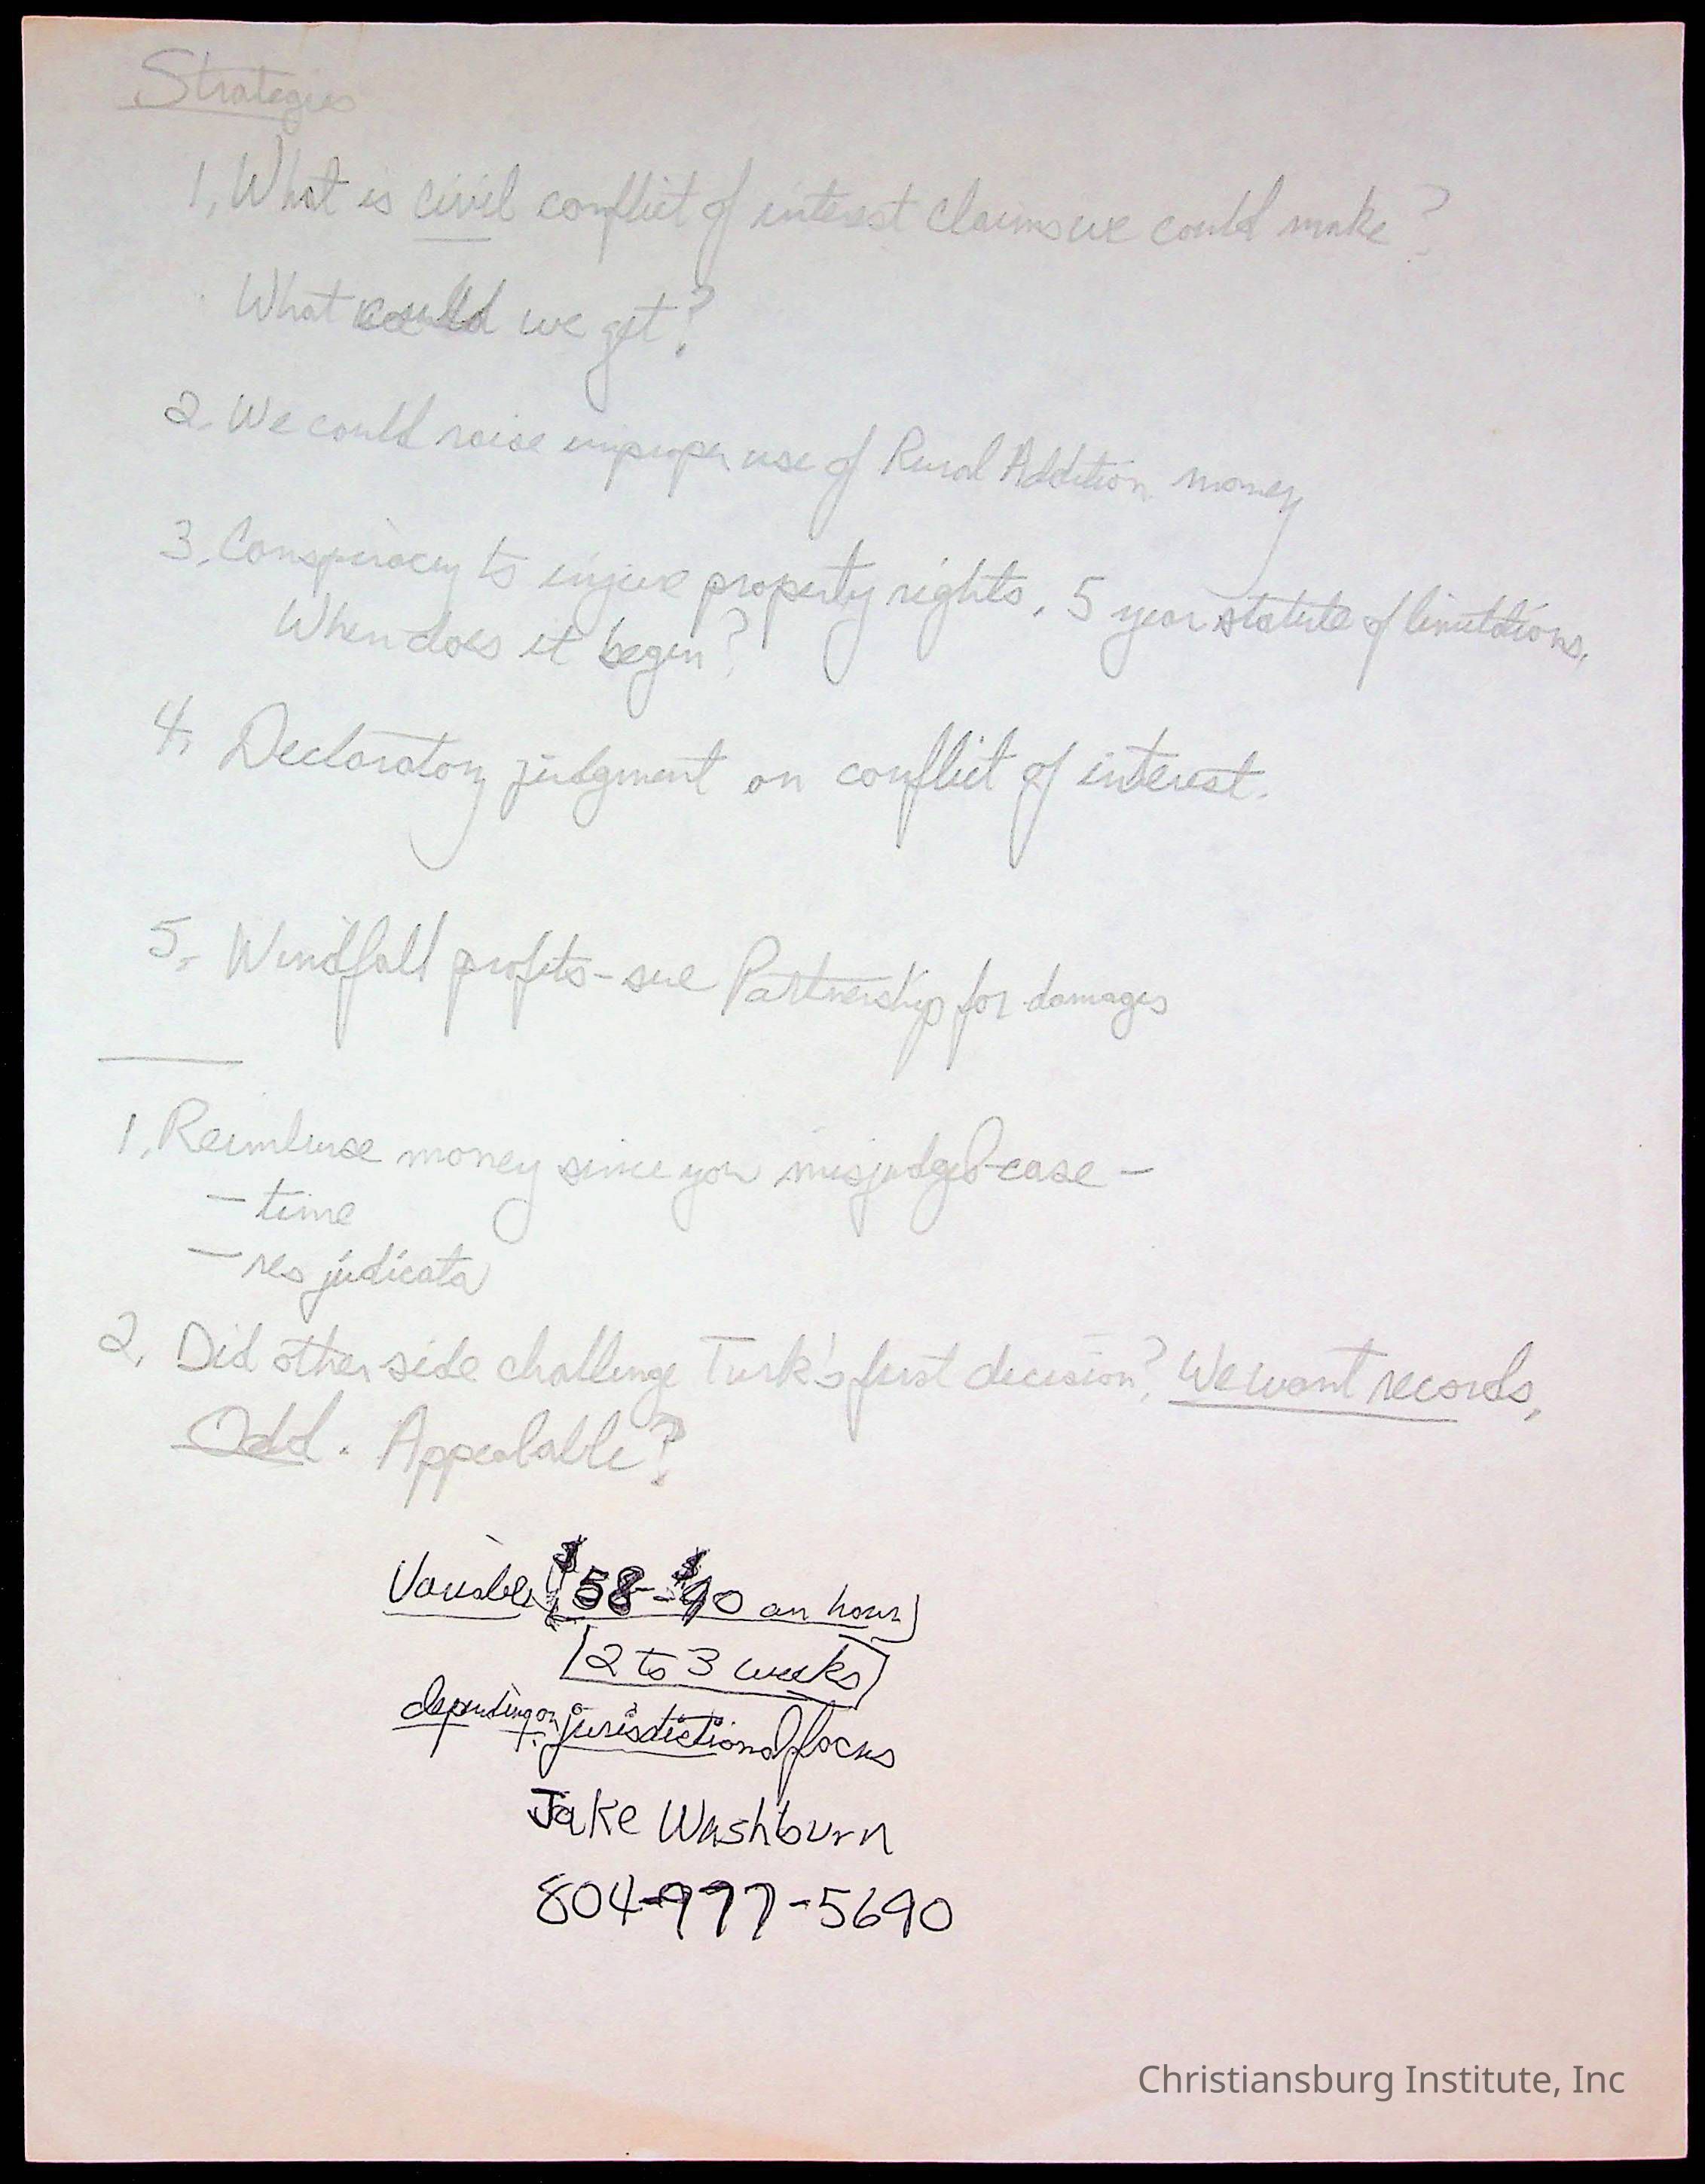 Strategies
1. What is civil conflict of interest claims we could make?
What could we get?
2. We could raise improper use of Rural Addition money
3. Conspiracy to injure property rights. 5 year statute of limitations.
When does it begin?
4. Declaratory judgment on conflict of interest.
5. Windfall profits - sue Partnership for damages
1. Reimburse money since you misjudged case -
- time
- res judicata
2. Did other side challenge Turk's first decision? We want records.
Odd. Appealable?
Variable ($58-$90 an hour)
[2 to 3 weeks]
depending on jurisdictional focus
Jake Washburn
804-977-5690
Christiansburg Institute, Inc